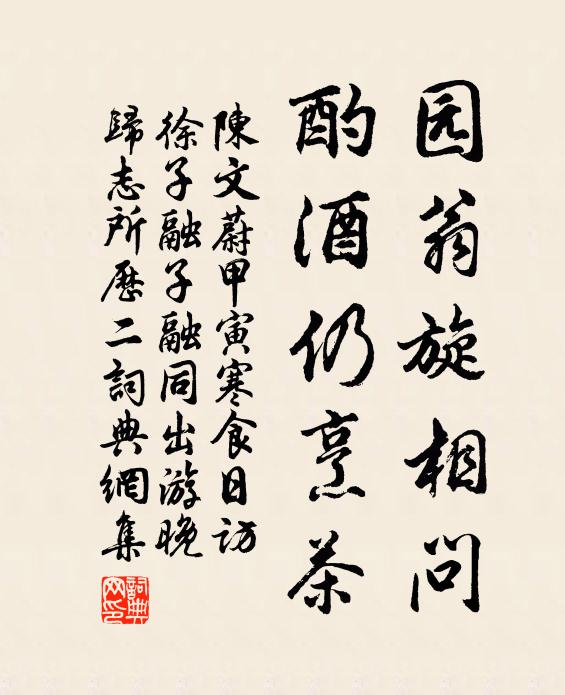 园翁旋相问
酌酒仍烹茶
陳文蔚甲寅寒食日访
徐子融子融同出游晚
歸志所歷二詞典網集
詞典网印